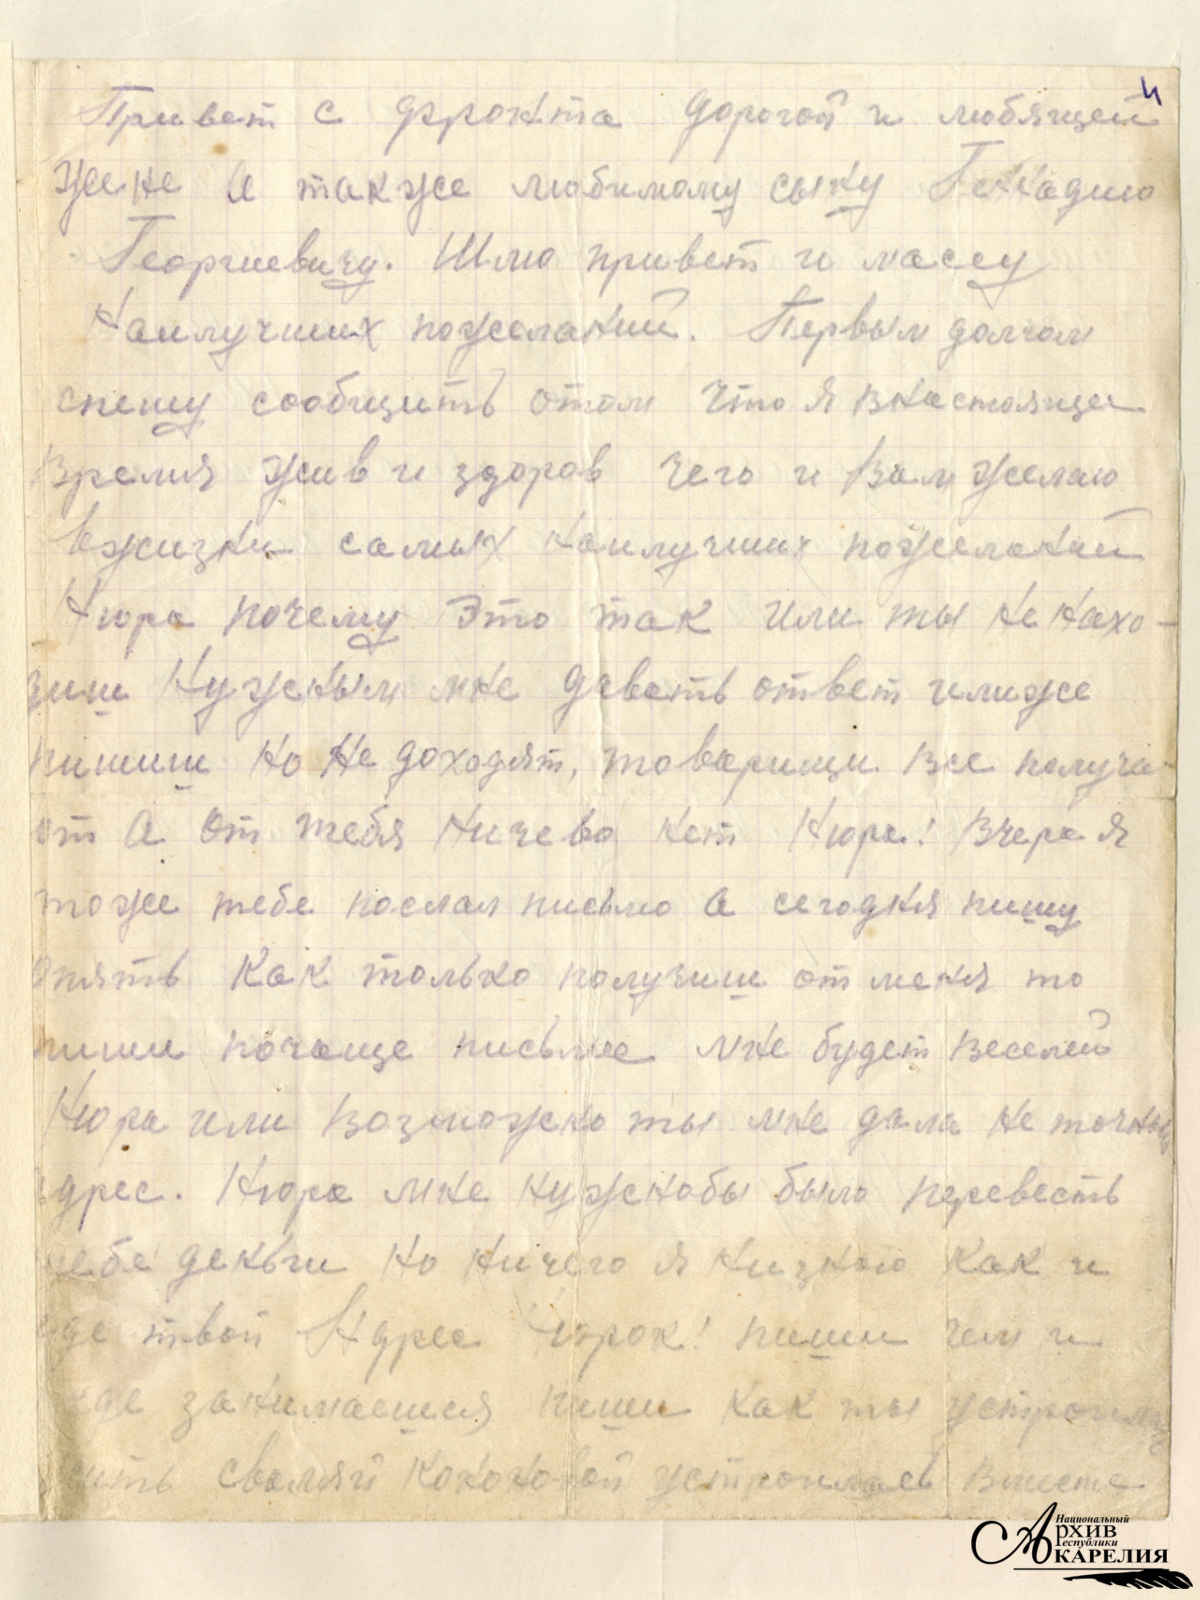 Привет с фронта дорогой и любящей
жене и также любимому сыну Генадию
Георгиевичу. Шлю привет и массу
наилучших пожеланий. Первым долгом
спешу сообщить отом что я внастоящее
время жив и здоров чего и Вам желаю
вжизни самых наилучших пожеланий
Нюра почему это так или ты не нахо-
зиш нужным мне давать ответ илиже
пишиш но не доходят, товарищи все получа
ют а от тебя ничево нет Нюра! Вчера я
тоже тебе послал письмо а сегодня пишу
опять как только получиш от меня то
пиши почаще письмее мне будет веселей
Нюра или возможно ты мне дала не точный
адрес. Нюра мне нужнобы было перевесть
тебе деньги но ничего я низнаю как и
где твой Адрес Нюрок! пиши чем и
где занимаешся, пиши как ты устроилась
жить сваляй устроилась вместе
4
Национальный
Архив
Республики
Карелия